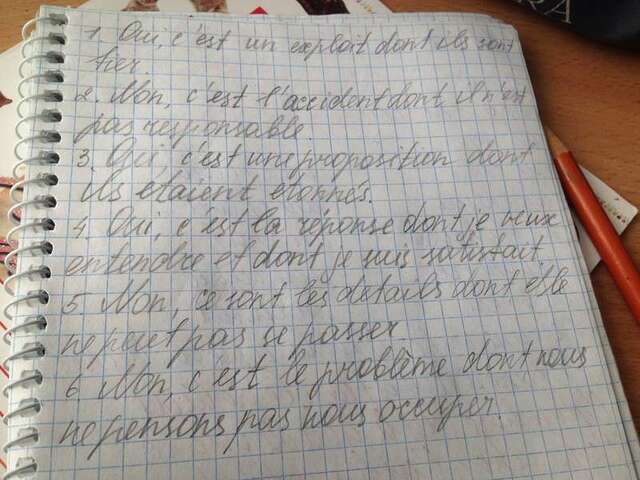 1. Oui, c'est un exploit dont ils sont
fiers.
2. Non, c'est l'accident dont il n'est
pas responsable.
3. Oui, c'est une proposition dont
ils étaient
4. Oui, c'est la réponse dont je veux
entendre et dont je suis satisfait.
5. Non, ce sont les détails dont elle
ne peut pas se passer.
6. Non, c'est le problème dont nous
ne pensons pas nous occuper.